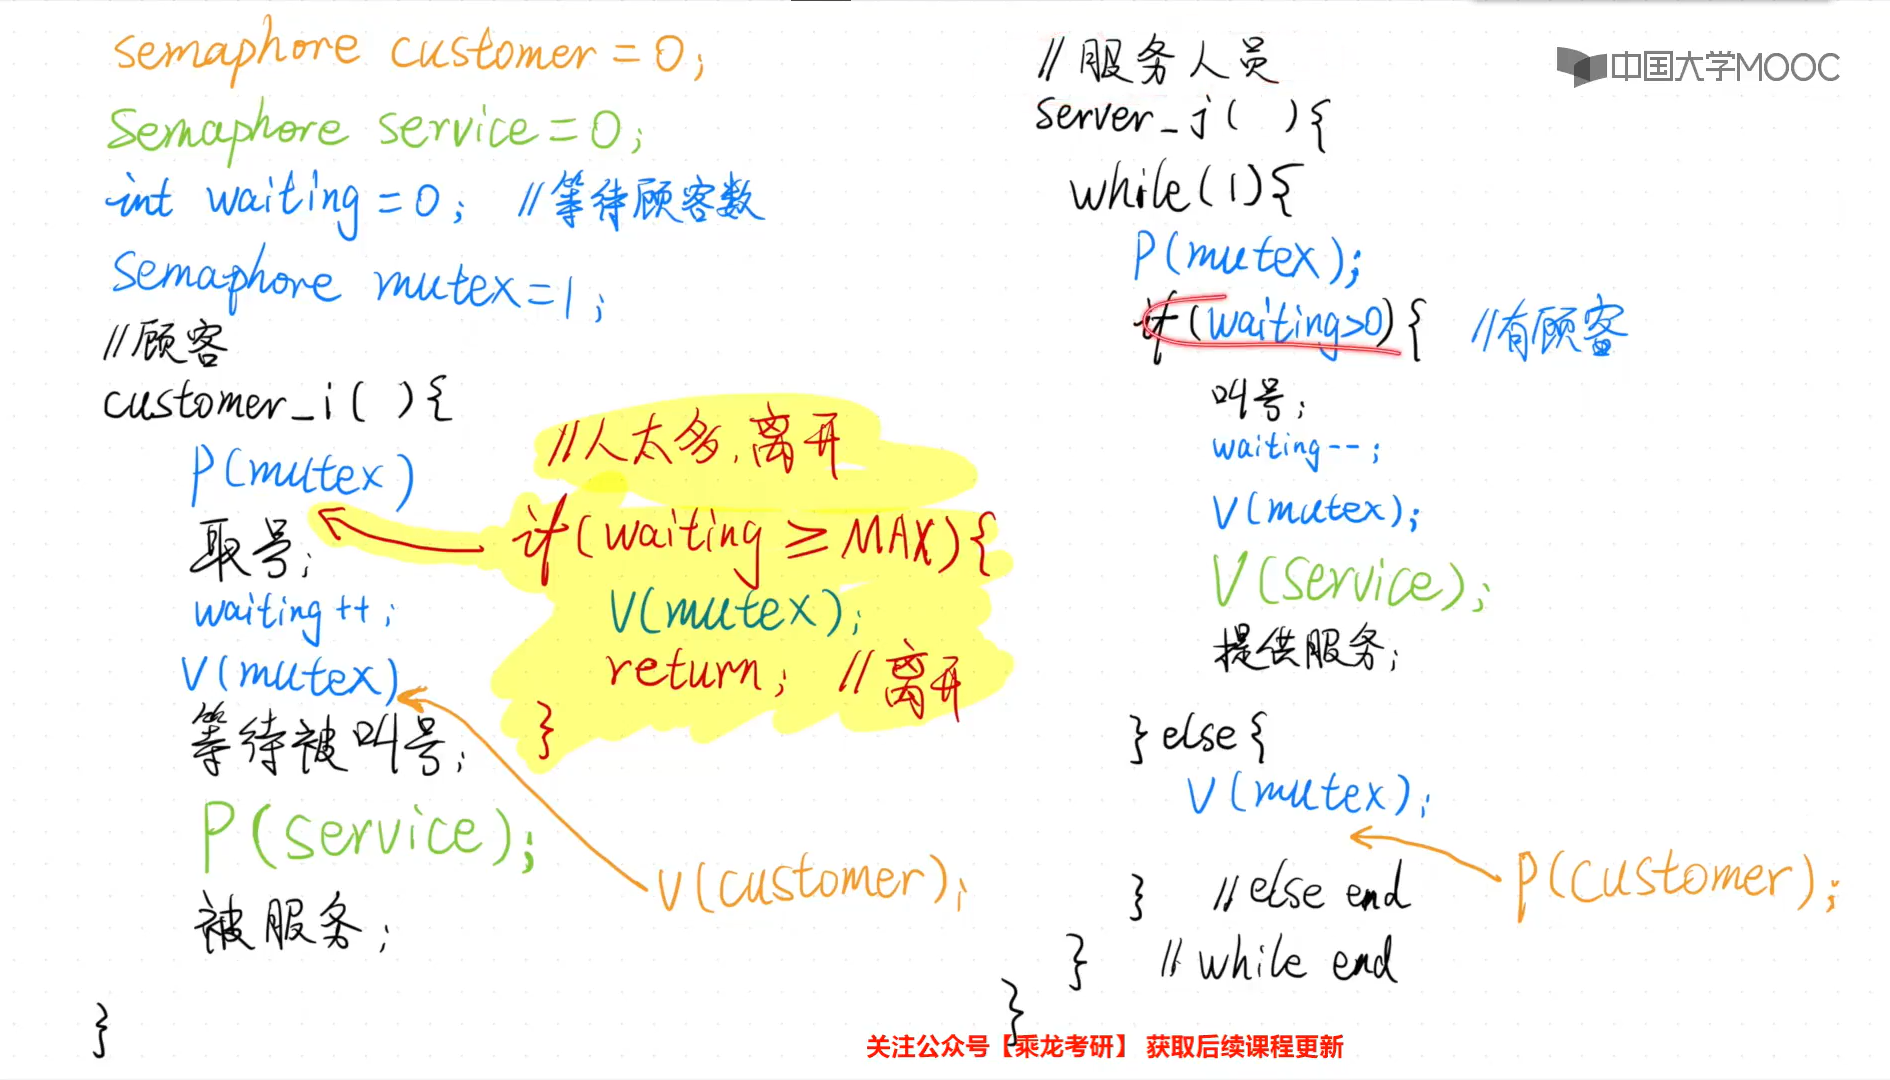 semaphore customer = 0;
Semaphore service = 0;
int waiting = 0; //等待顾客数
Semaphore mutex=1;
//顾客
customer_i( ){
P(mutex)
取号;
waiting++;
V(mutex)
等待被叫号;
P(service);
被服务;
}
//人太多,离开
if(waiting ≥ MAX){
V(mutex);
return; //离开
}
V(customer);
//服务人员
server_j( ){
while(1){
P(mutex);
if(waiting>0){ //有顾客
叫号;
waiting--;
V(mutex);
V(service);
提供服务;
}else{
V(mutex);
P(customer);
} //else end
} //while end
}
中国大学MOOC
关注公众号【乘龙考研】 获取后续课程更新